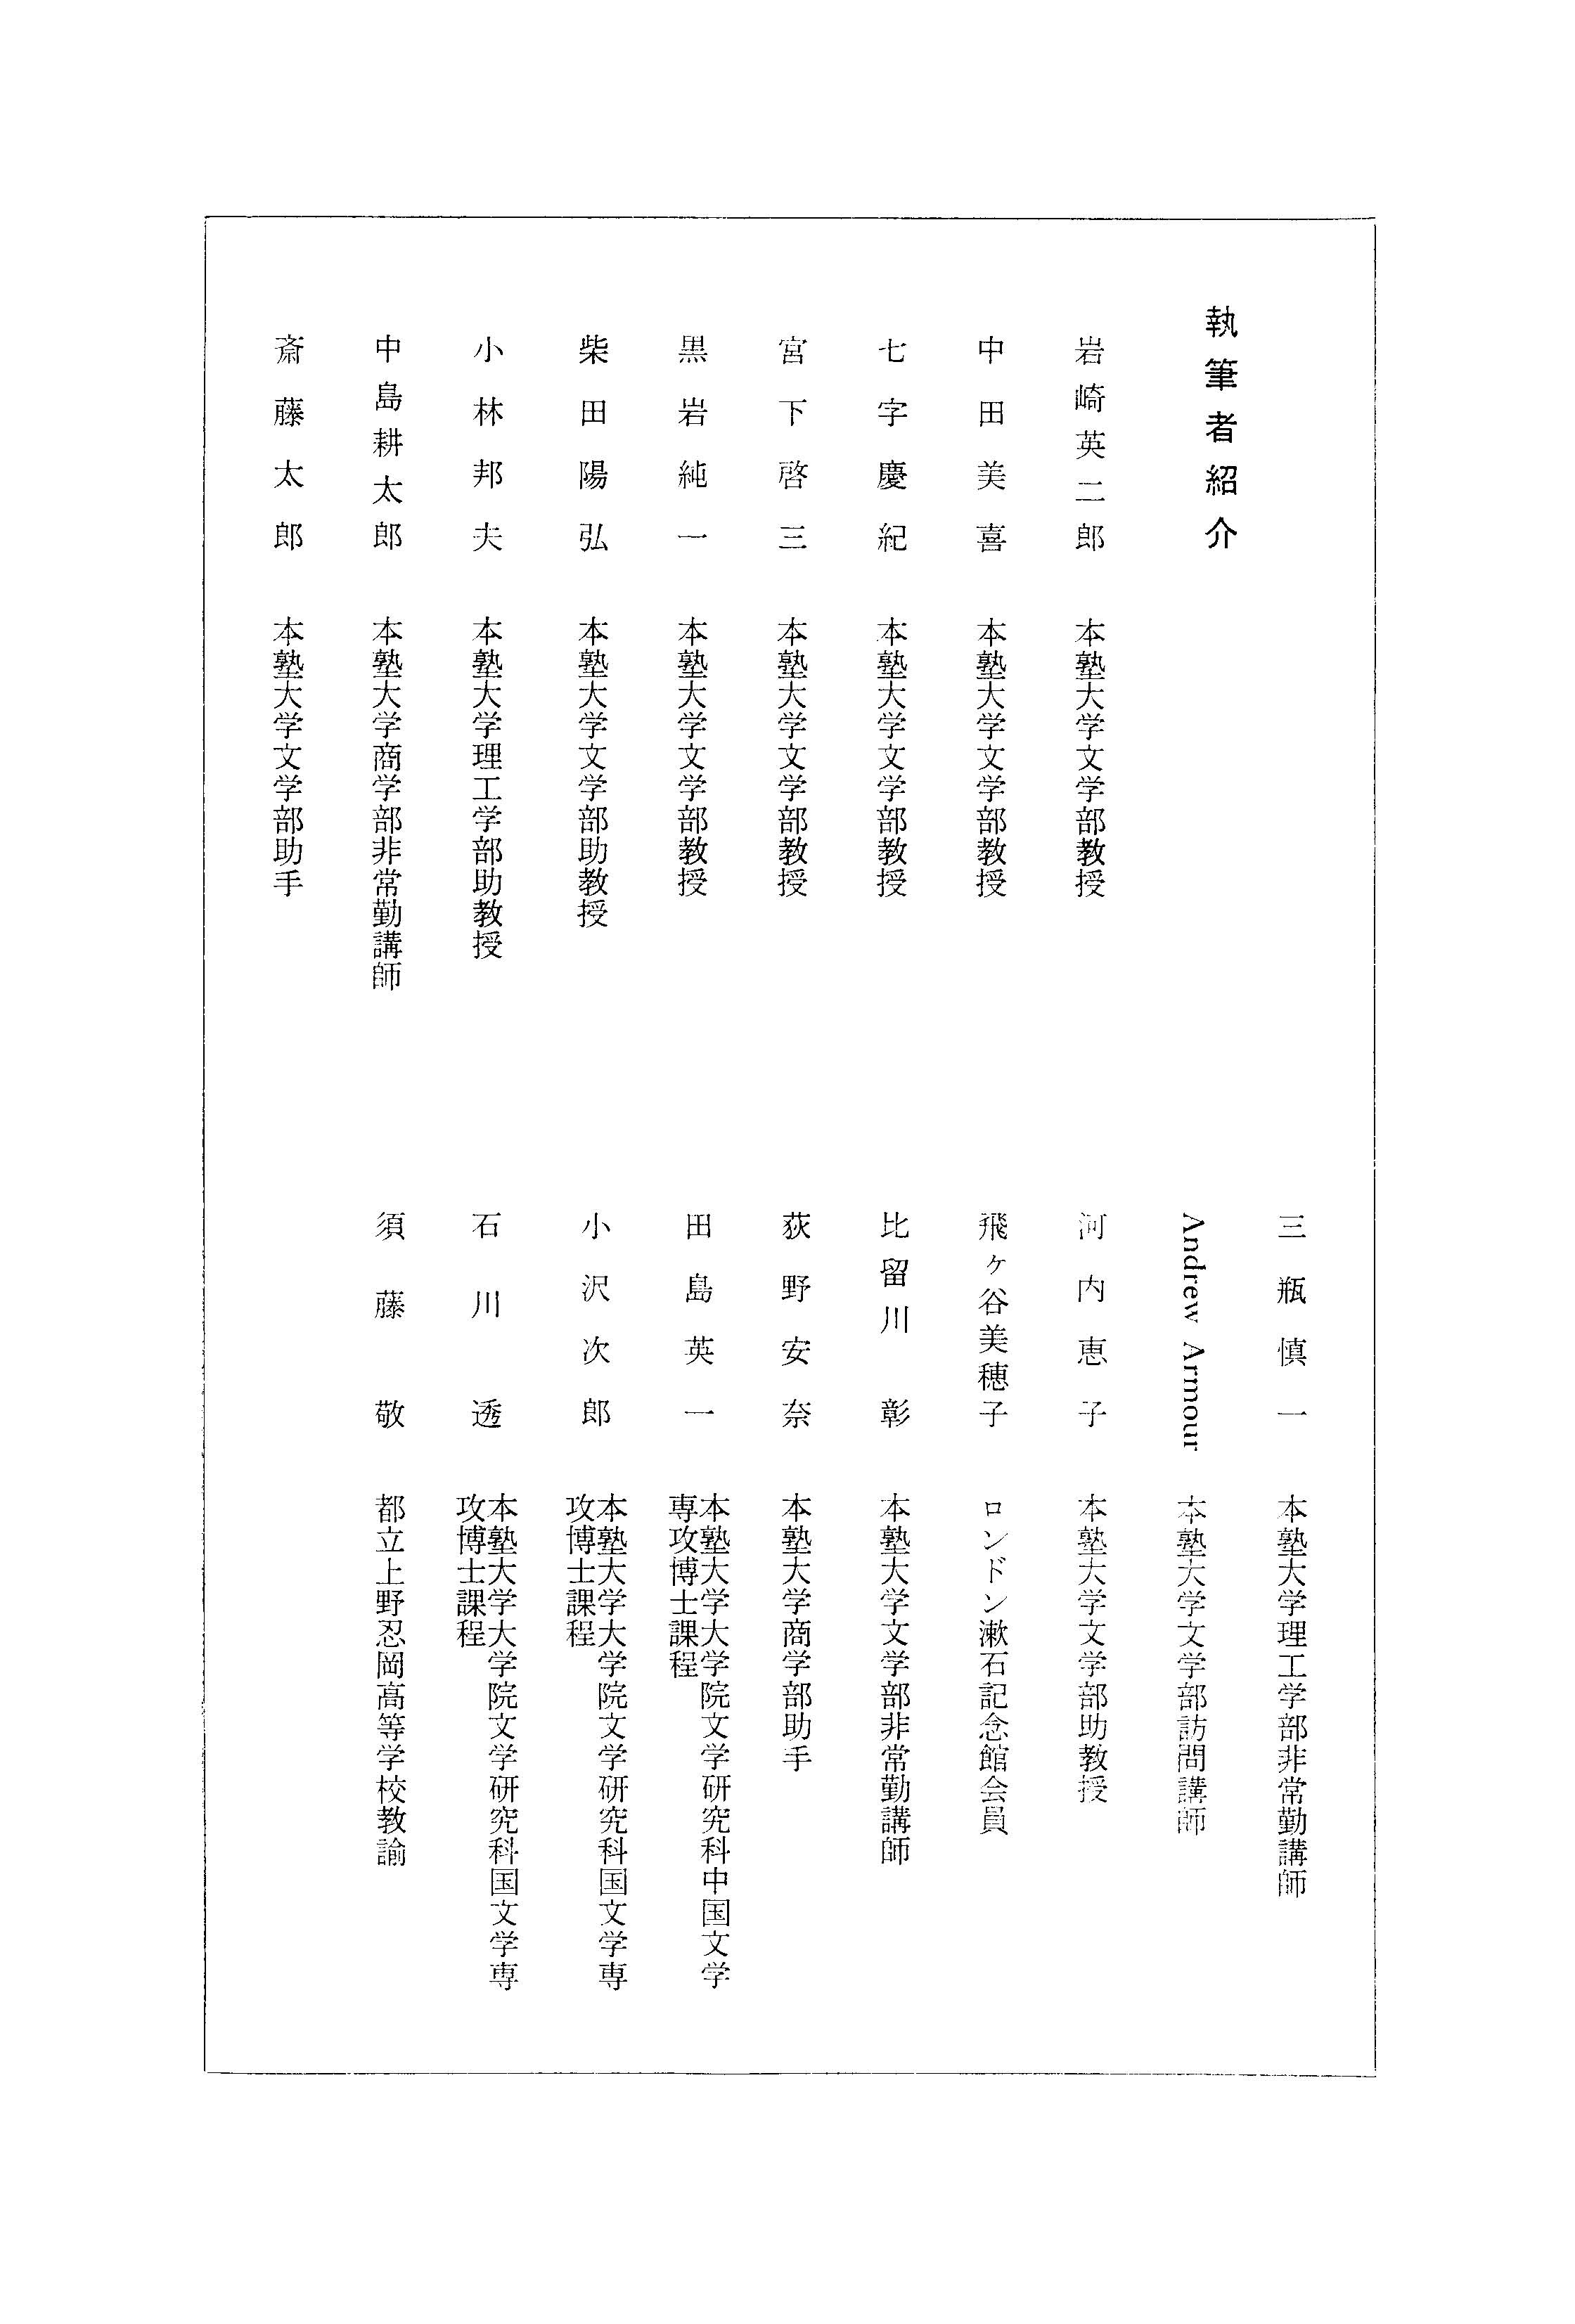 執筆者紹介
岩崎英二郎　本塾大学文学部教授
中田美喜　本塾大学文学部教授
七字慶紀　本塾大学文学部教授
宮下啓三　本塾大学文学部教授
黒岩純一　本塾大学文学部教授
柴田陽弘　本塾大学文学部助教授
小林邦夫　本塾大学理工学部助教授
中島耕太郎　本塾大学商学部非常勤講師
斎藤太郎　本塾大学文学部助手
三瓶慎一　本塾大学理工学部非常勤講師
Andrew Armour　本塾大学文学部訪問講師
河内恵子　本塾大学文学部助教授
飛ヶ谷美穂子　ロンドン漱石記念館会員
比留川彰　本塾大学文学部非常勤講師
荻野安奈　本塾大学商学部助手
田島英一　本塾大学大学院文学研究科中国文学
専攻博士課程
小沢次郎　本塾大学大学院文学研究科国文学専
攻博士課程
石川透　本塾大学大学院文学研究科国文学専
攻博士課程
須藤敬　都立上野忍岡高等学校教諭